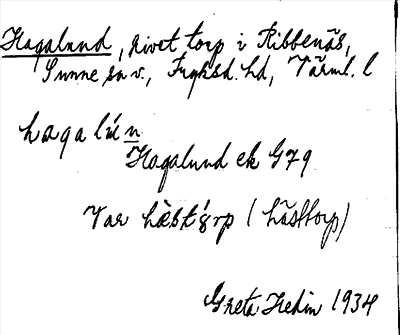 Hagalund, rivet torp i Ribbenäs,
Sunne sn v., Fryksd. hd, Värml. l
hagalún
Hagalund ek G79
Var hæ̀stɔrp (hästtorp)
Greta Hedin 1934